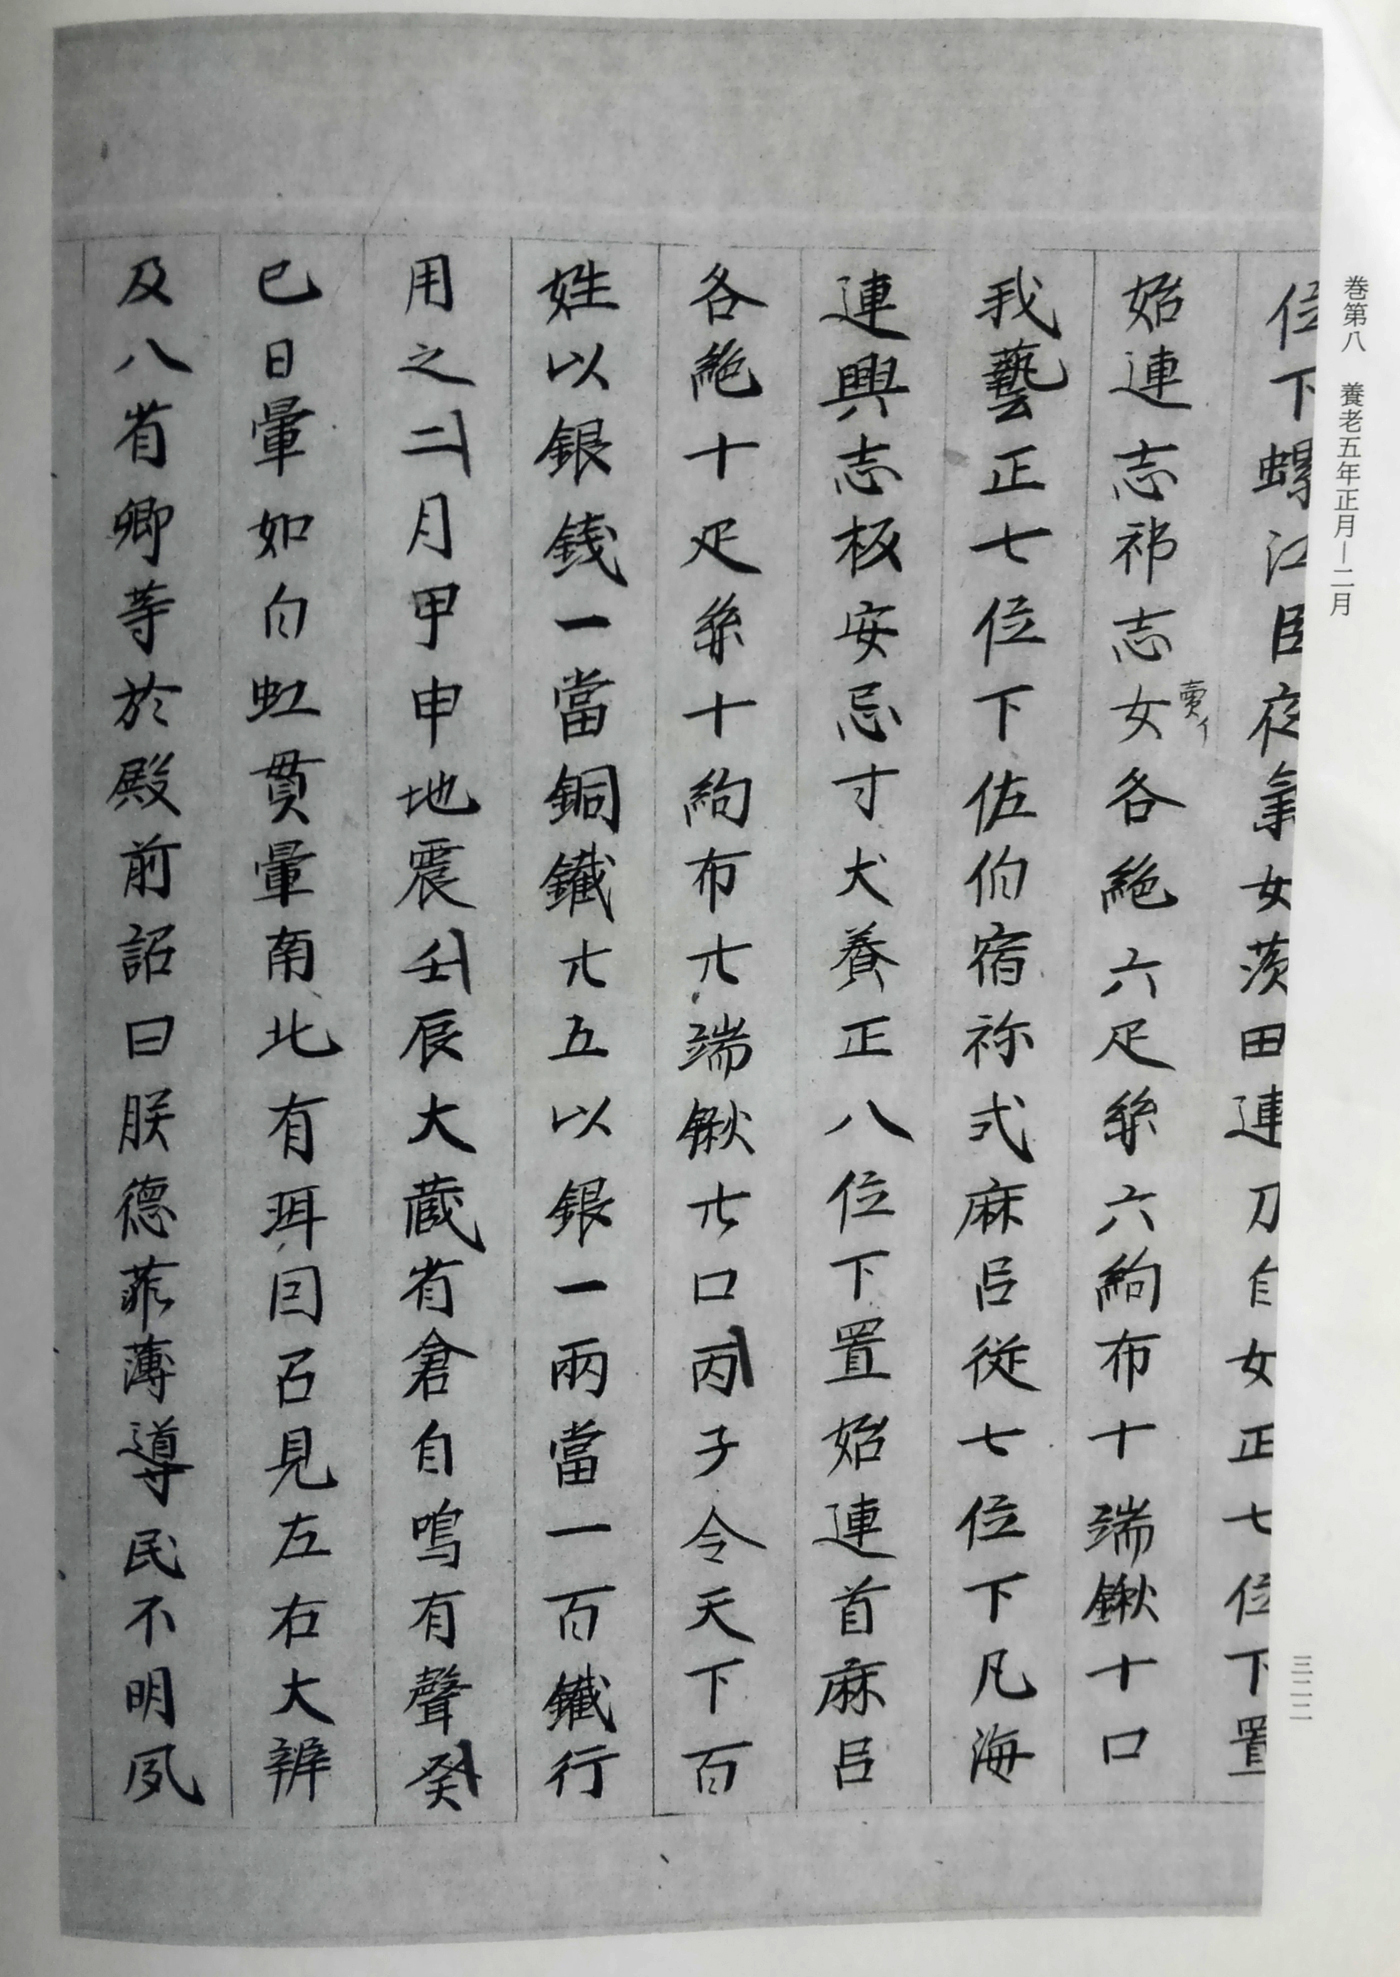 巻第八　養老五年正月―二月
三二二
位下螺江臣夜氣女茨田連刀自女正七位下置
始連志祁志女各絁六疋絲六絇布十端鍬十口
賣イ
我藝正七位下佐伯宿祢式麻呂從七位下凡海
連興志板安忌寸犬養正八位下置始連首麻呂
各絁十疋絲十絇布廿端鍬廿口丙子令天下百
姓以銀銭一當銅鐵廿五以銀一兩當一百鐵行
用之二月甲申地震壬辰大蔵省倉自鳴有聲癸
巳日暈如白虹貫暈南北有珥因召見左右大辨
及八省卿等於殿前詔曰朕德菲薄導民不明夙